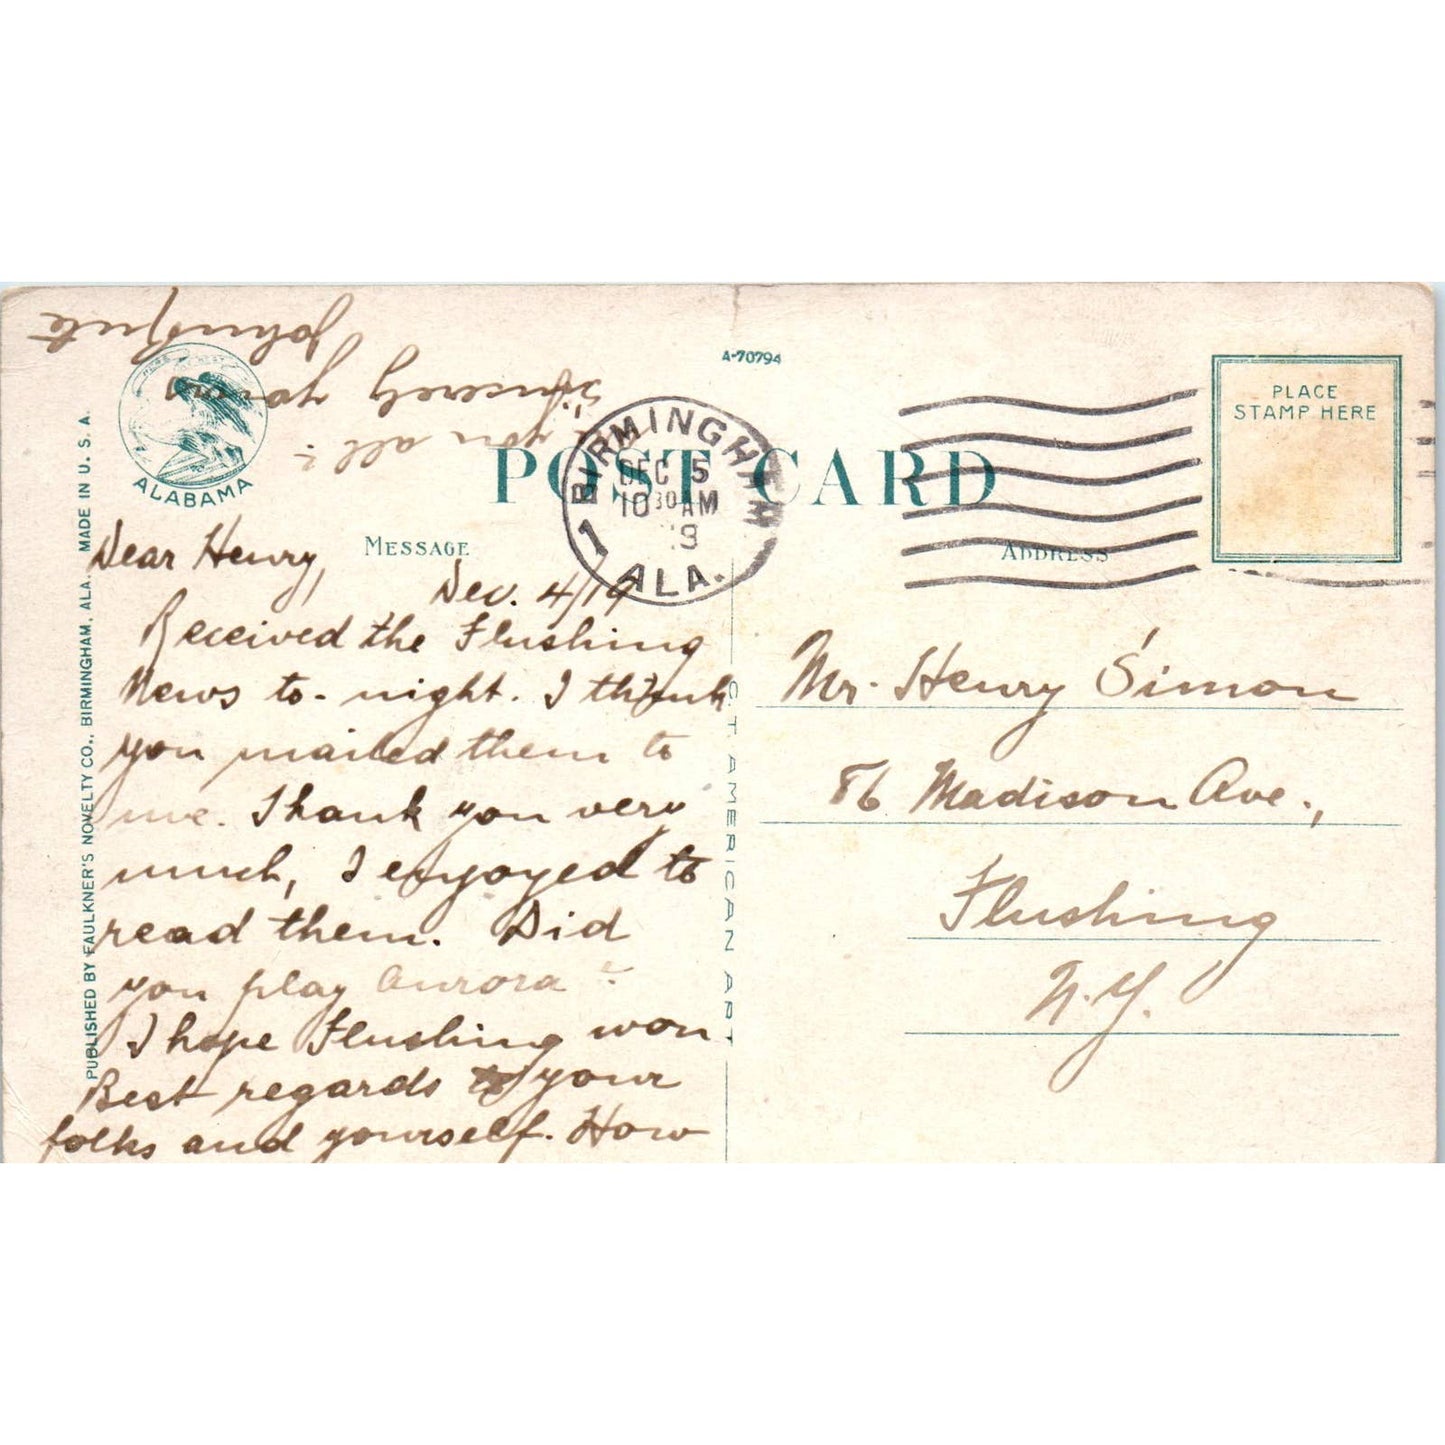 A-70794
PLACE
STAMP HERE
POST CARD
ALABAMA
BIRMINGHAM
DEC 5
10 30 AM
19
1
ALA.
MESSAGE
ADDRESS
Dear Henry,
Dec. 4/19
Received the Flushing
News to-night. I think
you mailed them to
me. Thank you very
much, I enjoyed to
read them. Did
you play Aurora?
I hope Flushing won
Best regards to your
folks and yourself. How
you all?
Sincerely yours
John
Mr. Henry Simon
86 Madison Ave.,
Flushing
N.Y.
PUBLISHED BY FAULKNER'S NOVELTY CO., BIRMINGHAM, ALA. MADE IN U. S. A.
CT AMERICAN ART